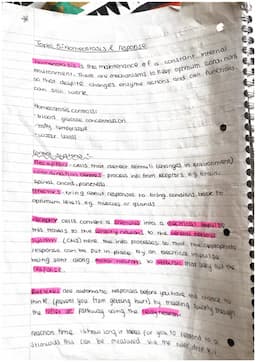 Topic 5: Homeostasis & response
Homeostasis is the maintenance of a constant internal
environment. There are mechanisms to keep optimum conditions
so that despite changes enzyme actions and cell functions
can still work.
Homeostasis controls:
- blood glucose concentration
- body temperature
- water levels
Control systems:-
Receptors - cells that detect stimuli (changes in environment)
Coordination centres - process info from receptors e.g. brain,
spinal cord, pancreas
Effectors - bring about responses to bring conditions back to
optimum levels e.g. muscles or glands
Receptor cells convert a stimulus into a electrical impulse
this travels to the sensory neuron to the central nervous
system (CNS) where the info processes so that the appropriate
response can be put in place by an electrical impulse
being sent along motor neuron to effector that carry out the
response.
Reflexes are automatic responses before you have the chance to
think (prevent you from getting hurt) by travelling through
the reflex arc pathway using the relay neuron
Reaction time is how long it takes for you to respond to a
stimulus this can be measured via the ruler drop